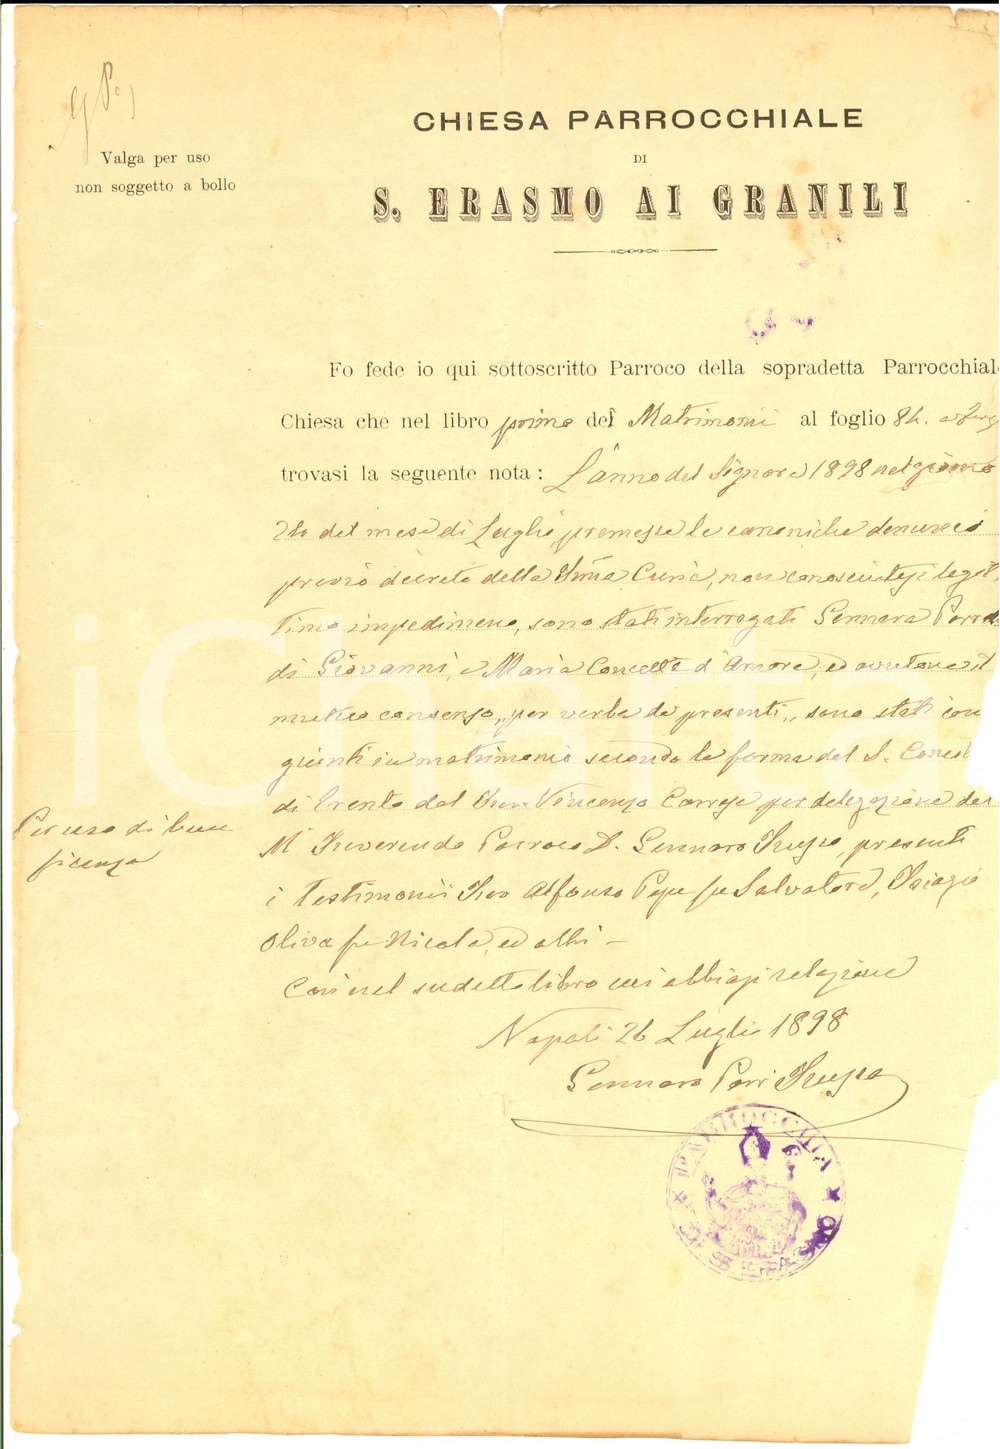 Valga per uso
non soggetto a bollo
CHIESA PARROCCHIALE
DI
S. ERASMO AI GRANILI
Fo fede io qui sottoscritto Parroco della sopradetta Parrocchial
Chiesa che nel libro primo dei Matrimoni al foglio 84.
trovasi la seguente nota: L'anno del Signore 1898 nel giorno
del mese di Luglio, premesse le canoniche denuncie
previo decreto della Curia, non conosciutosi legit
timo impedimeno, sono stati interrogati Gennaro
di Giovanni, e Maria Concetta d'Amore, ed avutone il
mutuo consenso, per verba de presenti, sono stati con
giunti in matrimonio secondo la forma del S. Concil
di Trento dal Vincenzo per delegazione del
M Reverendo Parroco D. Gennaro presenti
i Testimonii Alfonso Pepe fu Salvatore, Biagio
Oliva fu Nicola, ed altri —
Così nel sudetto libro cui abbiasi relazione
Napoli 26 Luglio 1898
Gennaro Parr
Per uso di bene
ficenza
PARROCCHIA
DI S. ERASMO